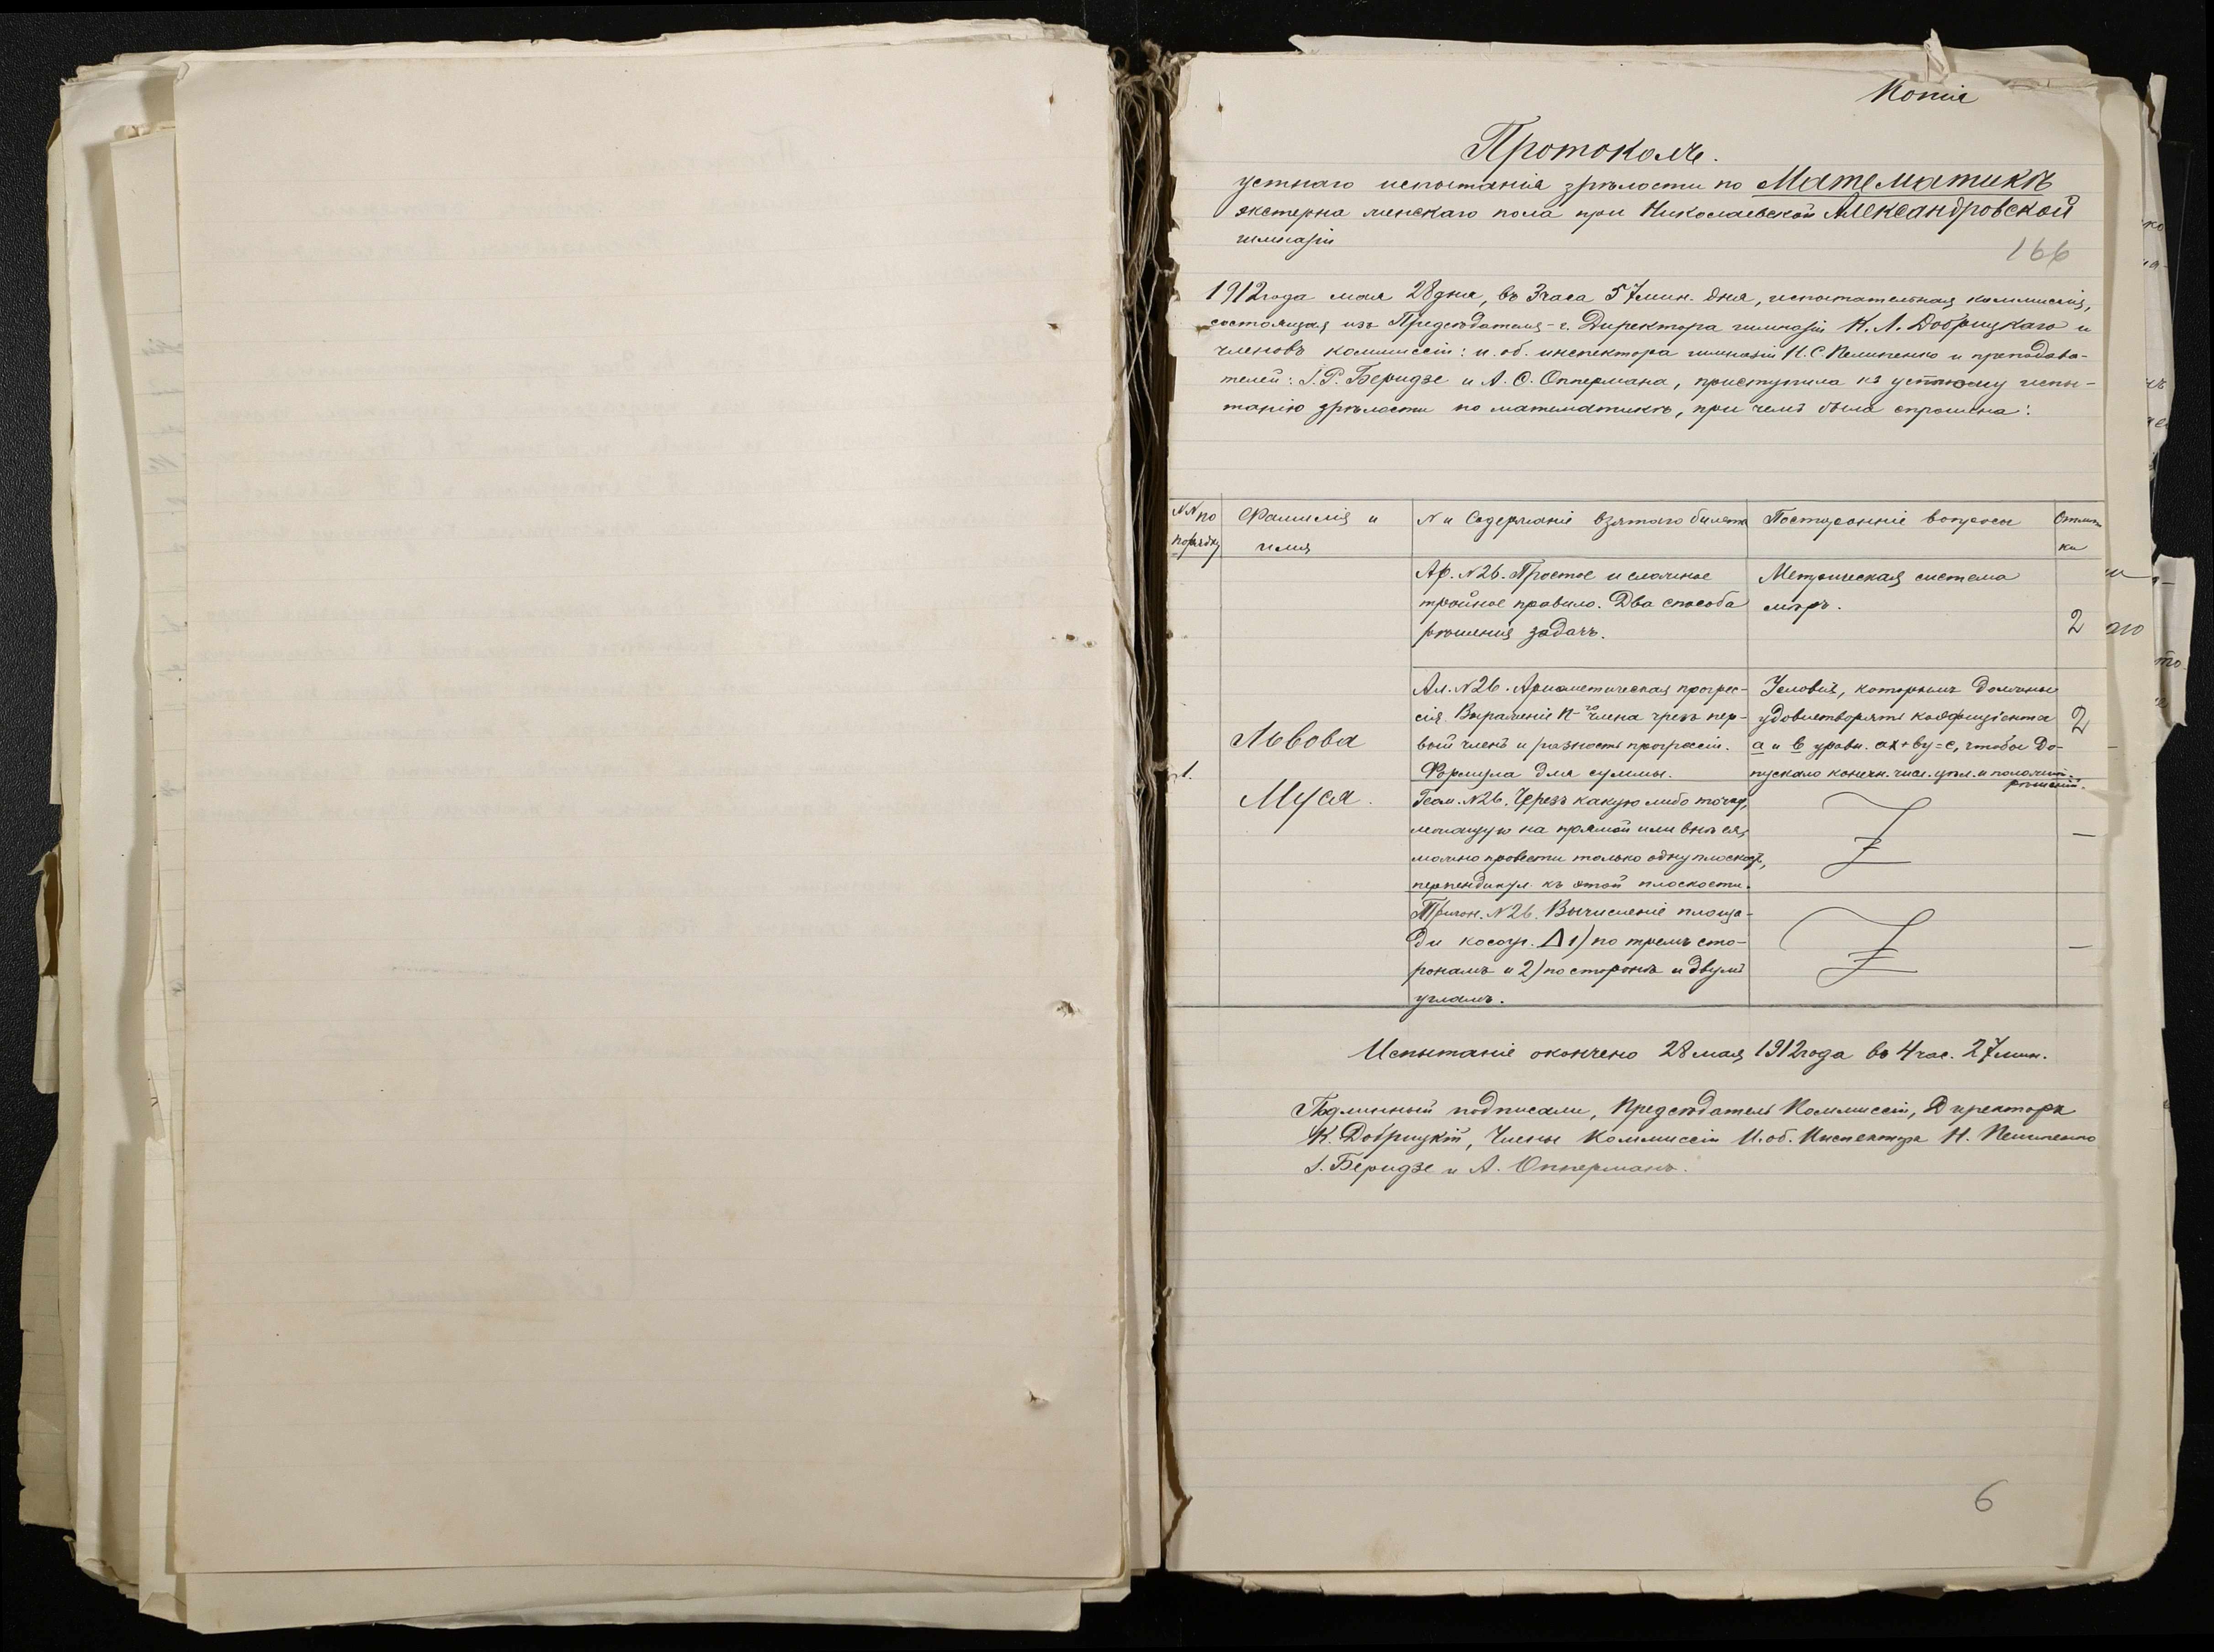 Копія
Протоколъ.
устнаго испытанія зрѣлости по Математикѣ
экстерна женскаго пола при Николаевской Александровской
гимназіи
166
1912 года мая 28 дня, въ 3 часа 57 мин. дня, испытательная коммиссія,
состоящая изъ Предсѣдателя - г. Директора гимназіи К. Л. Добрицкаго и
членовъ коммиссіи: и. об. инспектора гимназіи Н. С. Пелипенко и преподава-
телей: І. Р. Беридзе и А. О. Оппермана, приступила къ устному испы-
танію зрѣлости по математикѣ, при чемъ была спрошена:
№№ по
порядку
Фамилія и
имя
№ и Содержаніе взятаго билета
Посторонніе вопросы
Отмѣт
ки
1.
Львова
Муся.
Ар. №26. Простое и сложное
тройное правило. Два способа
рѣшенія задачъ.
Метрическая система
мѣръ.
2
Ал. №26. Ариѳметическая прогрес-
сія. Выраженіе n-го члена чрезъ пер-
вый членъ и разность прогрессіи.
Формула для суммы.
Условія, которымъ должны
удовлетворять коэффиціента
a и b уравн. ax+by=c, чтобы до-
пускало конечн. числ. цѣл. и положит.
рѣшеній.
2
Геом. №26. Черезъ какую либо точку,
лежащую на прямой или внѣ ея,
можно провести только одну плоскость,
перпендикул. къ этой плоскости.
Z
—
Тригон. №26. Вычисленіе площа-
ди косоуг. Δ 1) по тремъ сто-
ронамъ и 2) по сторонѣ и двумъ
угламъ.
Z
—
Испытаніе окончено 28 мая 1912 года въ 4 час. 27 мин.
Подлинный подписали, Предсѣдатель Коммиссіи, Директоръ
К. Добрицкій, Члены Коммиссіи И. об. Инспектора Н. Пелипенко
І. Беридзе и А. Опперманъ.
6